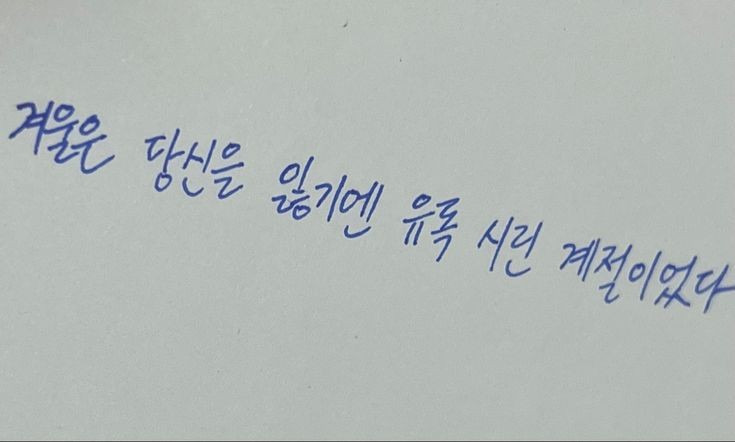 겨울은 당신을 잃기엔 유독 시린 계절이었다